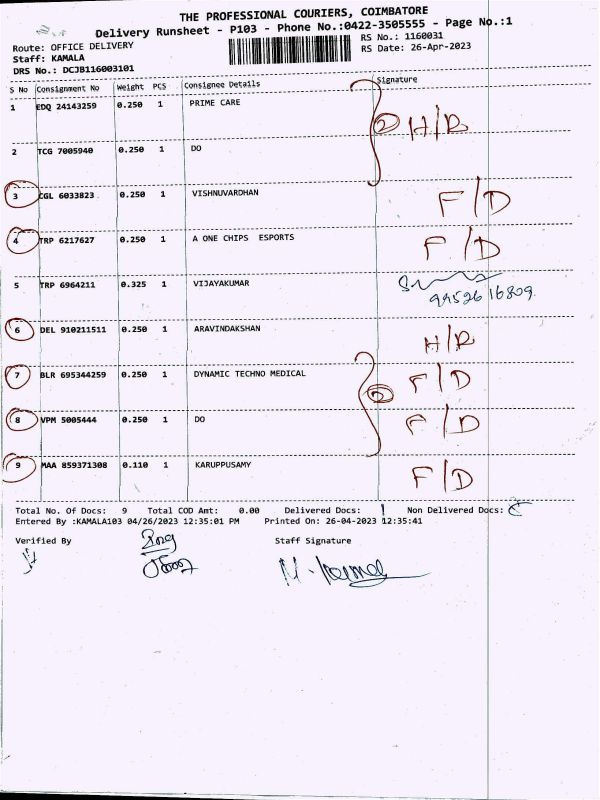 THE PROFESSIONAL COURIERS, COIMBATORE
Delivery Runsheet - P103 - Phone No.:0422-3505555 - Page No.:1
Route: OFFICE DELIVERY RS No.: 1160031
Staff: KAMALA RS Date: 26-Apr-2023
DRS No.: DCJB116003101
S No Consignment No Weight PCS Consignee Details Signature
1 EDQ 24143259 0.250 1 PRIME CARE
2 H/R
2 TCG 7005940 0.250 1 DO
3 CGL 6033823 0.250 1 VISHNUVARDHAN F/D
4 TRP 6217627 0.250 1 A ONE CHIPS ESPORTS F/D
5 TRP 6964211 0.325 1 VIJAYAKUMAR
9952616809
6 DEL 910211511 0.250 1 ARAVINDAKSHAN H/R
7 BLR 695344259 0.250 1 DYNAMIC TECHNO MEDICAL F/D
2
8 VPM 5005444 0.250 1 DO F/D
9 MAA 859371308 0.110 1 KARUPPUSAMY F/D
Total No. Of Docs: 9 Total COD Amt: 0.00 Delivered Docs: 1 Non Delivered Docs:
Entered By :KAMALA103 04/26/2023 12:35:01 PM Printed On: 26-04-2023 12:35:41
Verified By Staff Signature